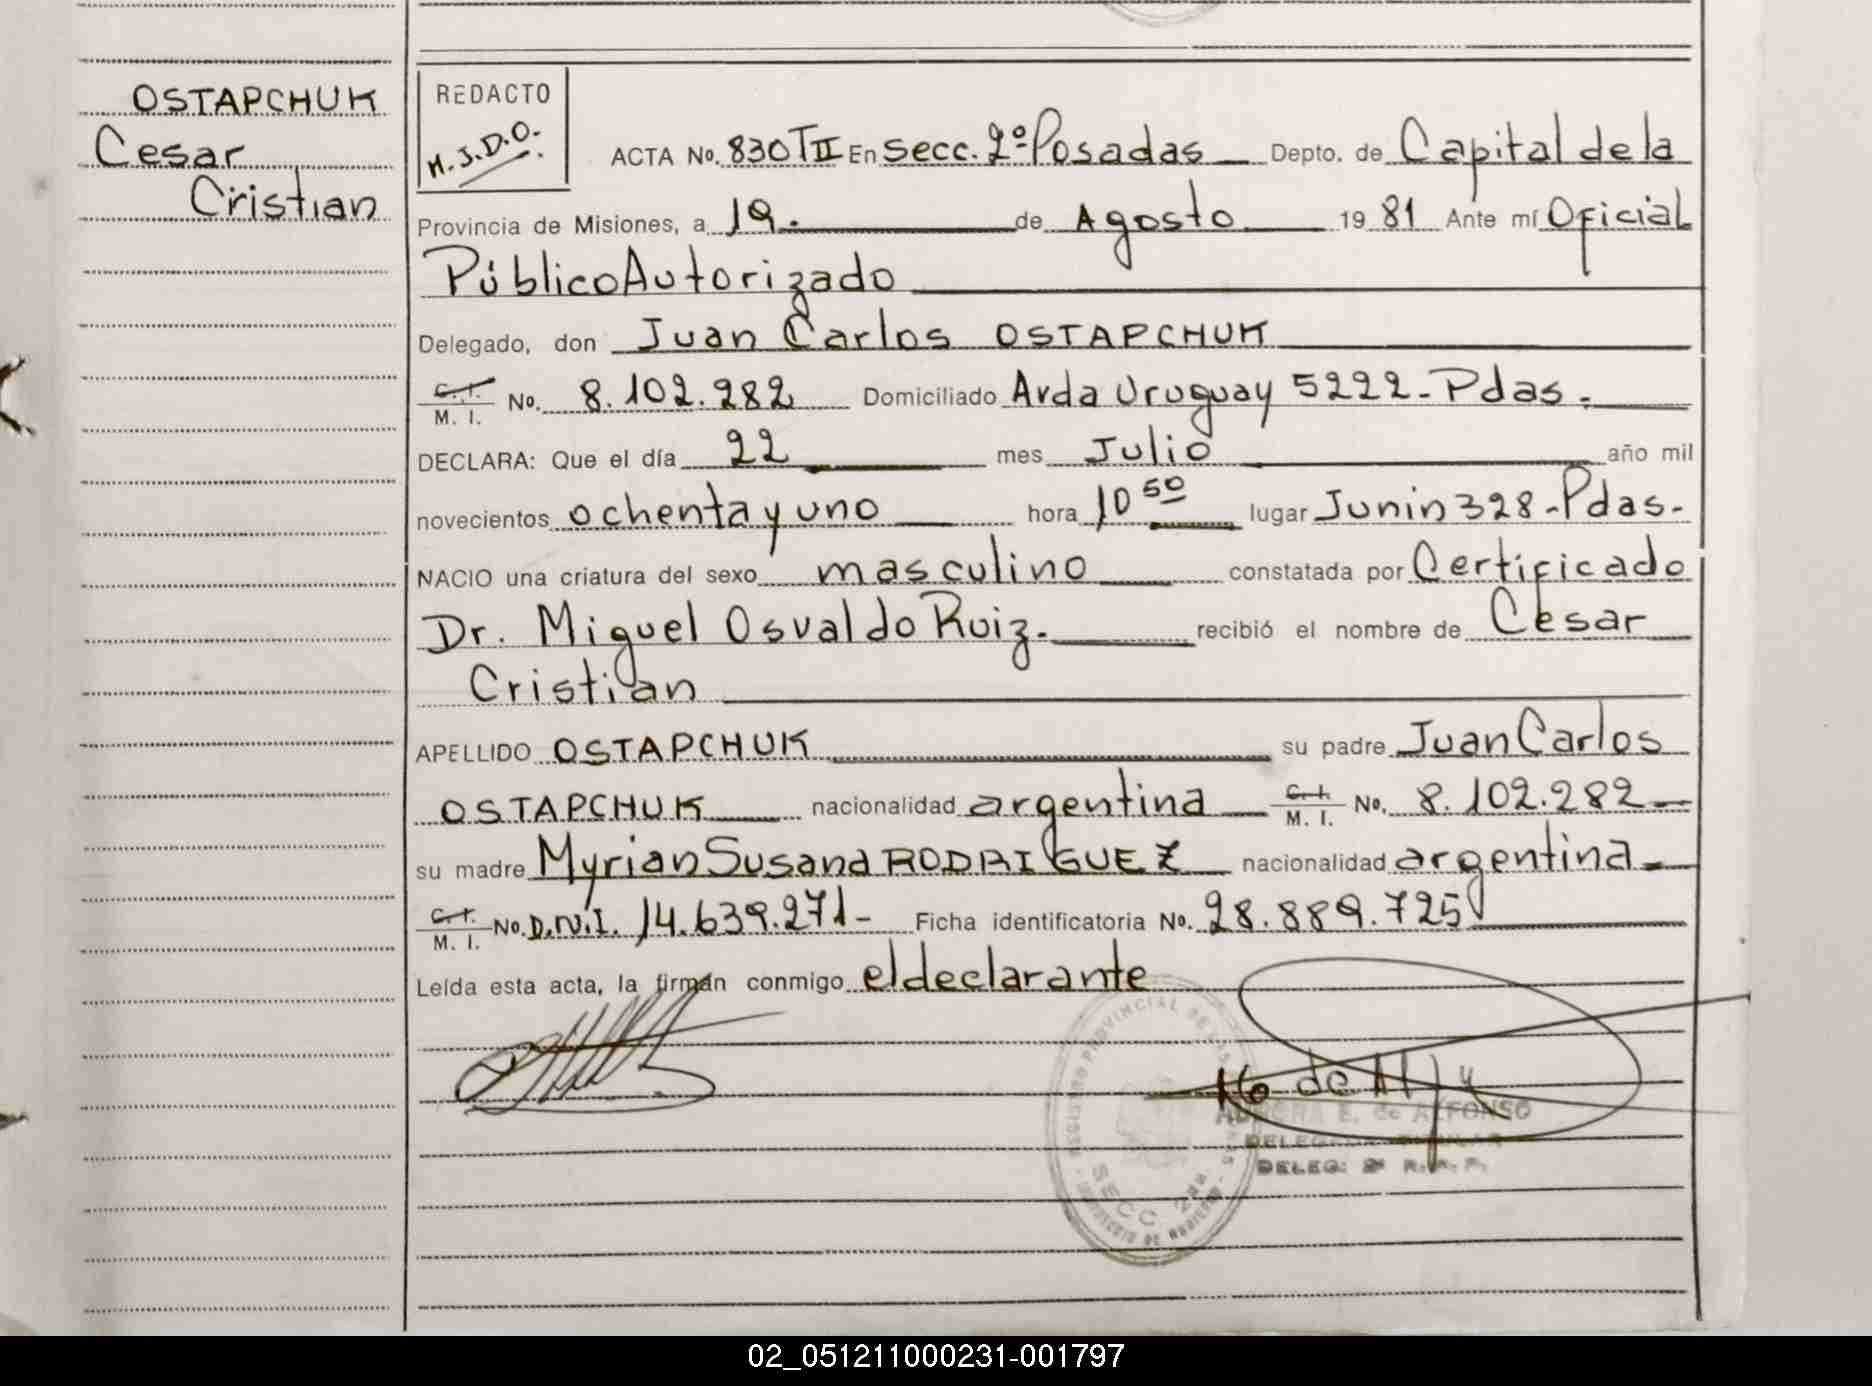 OSTAPCHUK
Cesar
Cristian
REDACTO
M.J.D.O.
ACTA No. 830 TII En Secc. 2º Posadas Depto. de Capital de la
Provincia de Misiones, a 19. de Agosto 19 81 Ante mí Oficial
Público Autorizado
Delegado, don Juan Carlos OSTAPCHUK
C.I. M. I. No. 8.102.282 Domiciliado Avda Uruguay 5222-Pdas.
DECLARA: Que el día 22 mes Julio año mil
novecientos ochenta y uno hora 10 50 lugar Junin 328-Pdas-
NACIO una criatura del sexo masculino constatada por Certificado
Dr. Miguel Osvaldo Ruiz. recibió el nombre de Cesar
Cristian
APELLIDO OSTAPCHUK su padre Juan Carlos
OSTAPCHUK nacionalidad argentina C.I. M. I. No. 8.102.282
su madre Myrian Susana RODRIGUEZ nacionalidad argentina
C.I. M. I. No. D.N.I. 14.639.271- Ficha identificatoria No. 28.889.725
Leída esta acta, la firman conmigo el declarante
REGISTRO PROVINCIAL DE LAS
SECC 2da
AURORA E. de ALFONSO
DELEGADA TITULAR
DELEG: 2ª R.P.P.
02_051211000231-001797